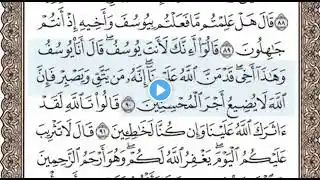 ﴿٨٨﴾ قَالَ هَلْ عَلِمْتُم مَّا فَعَلْتُم بِيُوسُفَ وَأَخِيهِ إِذْ أَنتُمْ
جَٰهِلُونَ ﴿٨٩﴾ قَالُوٓا۟ أَءِنَّكَ لَأَنتَ يُوسُفُ ۖ قَالَ أَنَا۠ يُوسُفُ
وَهَٰذَآ أَخِى ۖ قَدْ مَنَّ ٱللَّهُ عَلَيْنَآ ۖ إِنَّهُۥ مَن يَتَّقِ وَيَصْبِرْ فَإِنَّ
ٱللَّهَ لَا يُضِيعُ أَجْرَ ٱلْمُحْسِنِينَ ﴿٩٠﴾ قَالُوا۟ تَٱللَّهِ لَقَدْ
ءَاثَرَكَ ٱللَّهُ عَلَيْنَا وَإِن كُنَّا لَخَٰطِـِٔينَ ﴿٩١﴾ قَالَ لَا تَثْرِيبَ
عَلَيْكُمُ ٱلْيَوْمَ ۖ يَغْفِرُ ٱللَّهُ لَكُمْ ۖ وَهُوَ أَرْحَمُ ٱلرَّٰحِمِينَ